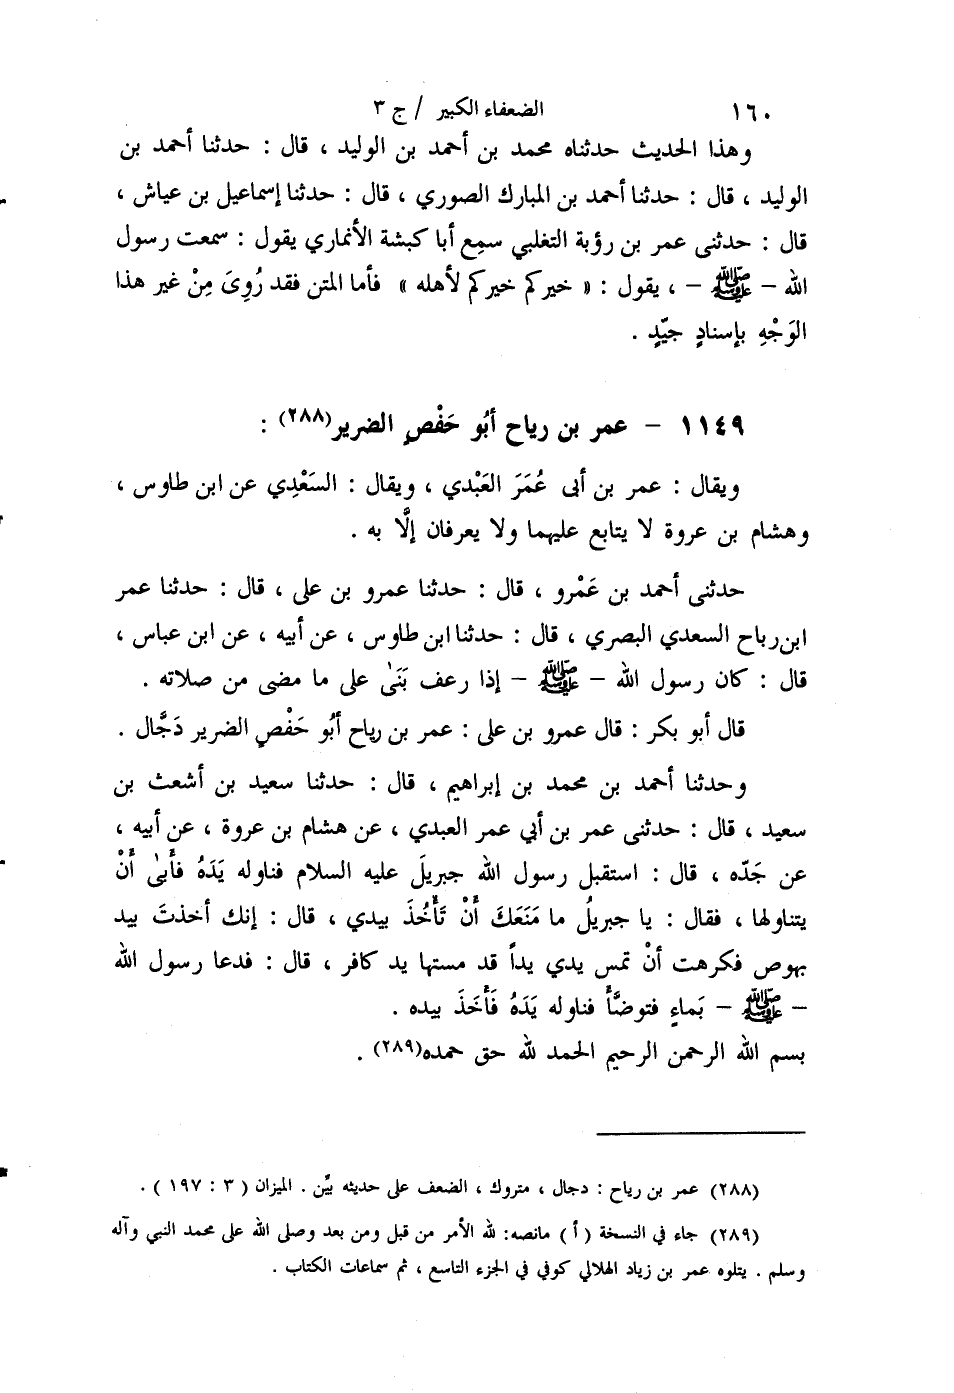 ١٦٠ الضعفاء الكبير / ج ٣
وهذا الحديث حدثناه محمد بن أحمد بن الوليد ، قال : حدثنا أحمد بن
الوليد ، قال : حدثنا أحمد بن المبارك الصوري ، قال : حدثنا إسماعيل بن عياش ،
قال : حدثنى عمر بن رؤبة التغلبي سمِع أبا كبشة الأنماري يقول : سمعت رسول
الله – ﷺ – ، يقول : « خيركم خيركم لأهله » فأما المتن فقد رُوِىَ مِنْ غير هذا
الوَجْهِ بإسنادٍ جيّدٍ .
١١٤٩ – عمر بن رياح أبُو حَفْصٍ الضرير(٢٨٨) :
ويقال : عمر بن أبى عُمَرَ العَبْدي ، ويقال : السَعْدِي عن ابن طاوس ،
وهشام بن عروة لا يتابع عليهما ولا يعرفان إلَّا به .
حدثنى أحمد بن عَمْرو ، قال : حدثنا عمرو بن على ، قال : حدثنا عمر
ابن رباح السعدي البصري ، قال : حدثنا ابن طاوس ، عن أبيه ، عن ابن عباس ،
قال : كان رسول الله – ﷺ – إذا رعف بَنَىٰ على ما مضى من صلاته .
قال أبو بكر : قال عمرو بن على : عمر بن رياح أبُو حَفْصٍ الضرير دَجَّال .
وحدثنا أحمد بن محمد بن إبراهيم ، قال : حدثنا سعيد بن أشعث بن
سعيد ، قال : حدثنى عمر بن أبي عمر العبدي ، عن هشام بن عروة ، عن أبيه ،
عن جَدّه ، قال : استقبل رسول الله جبريلَ عليه السلام فناوله يَدَهُ فأَبىٰ أَنْ
يتناولها ، فقال : يا جبريلُ ما مَنَعَكَ أَنْ تَأْخُذَ بيدي ، قال : إنك أخذتَ بيد
يهوص فكرهت أنْ تمس يدي يداً قد مستها يد كافر ، قال : فدعا رسول الله
– ﷺ – بَماءٍ فتوضَّأَ فناوله يَدَهُ فَأَخَذَ بيده .
بسم الله الرحمن الرحيم الحمد لله حق حمده(٢٨٩) .
(٢٨٨) عمر بن رياح : دجال ، متروك ، الضعف على حديثه بيِّن . الميزان ( ٣ : ١٩٧ ) .
(٢٨٩) جاء في النسخة ( أ ) مانصه: لله الأمر من قبل ومن بعد وصلى الله على محمد النبي وآله
وسلم . يتلوه عمر بن زياد الهلالي كوفي في الجزء التاسع ، ثم سماعات الكتاب .